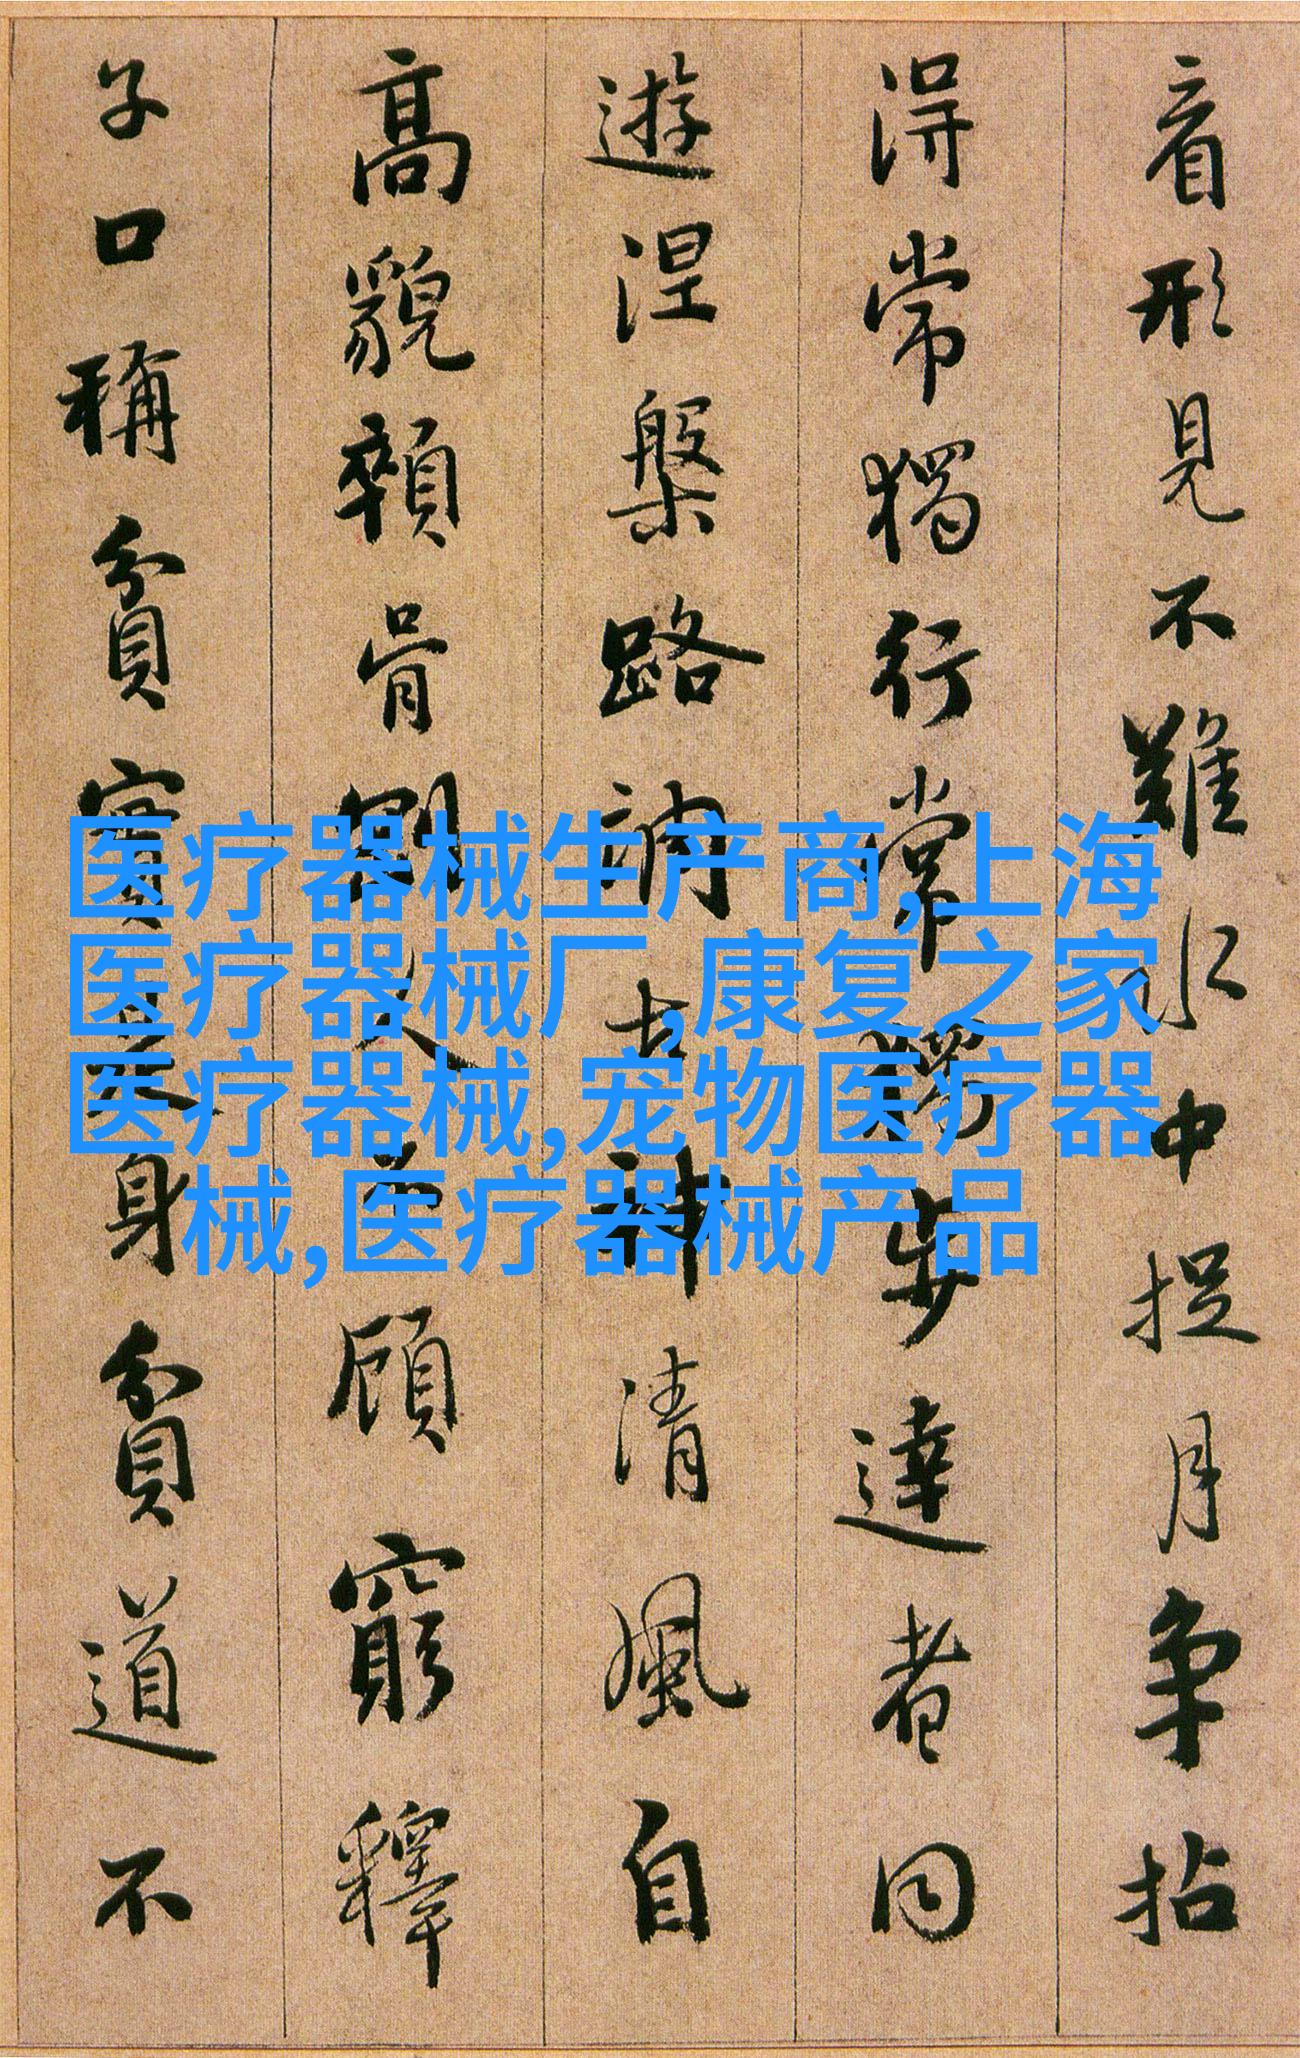 看形見不難水中捉月爭拈
得常獨行常獨步達者同
遊涅槃路調古神清風自
高貌顇骨剛人不顧窮釋
子口稱貧實是身貧道不
医疗器械生产商,上海
医疗器械厂,康复之家
医疗器械,宠物医疗器
械,医疗器械产品